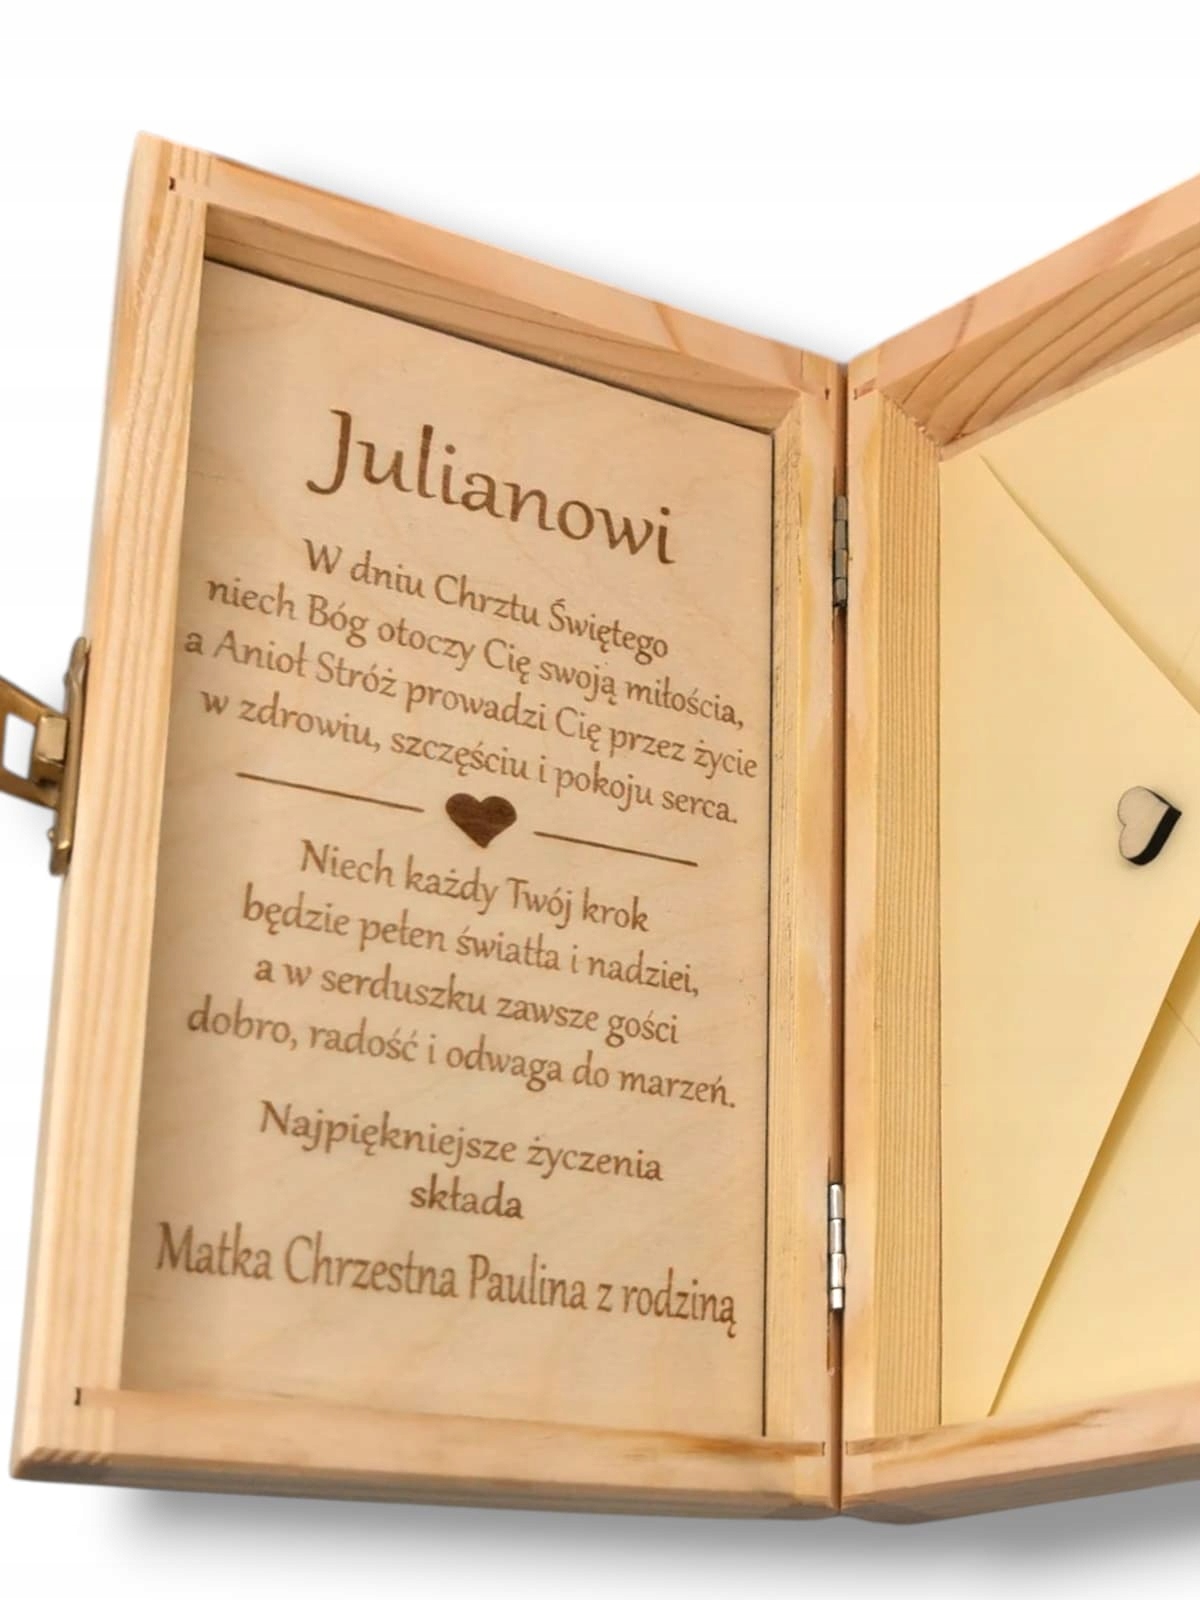 Julianowi
W dniu Chrztu Świętego
niech Bóg otoczy Cię swoją miłościa,
a Anioł Stróż prowadzi Cię przez życie
w zdrowiu, szczęściu i pokoju serca.
Niech każdy Twój krok
będzie pełen światła i nadziei,
a w serduszku zawsze gości
dobro, radość i odwaga do marzeń.
Najpiękniejsze życzenia
składa
Matka Chrzestna Paulina z rodziną